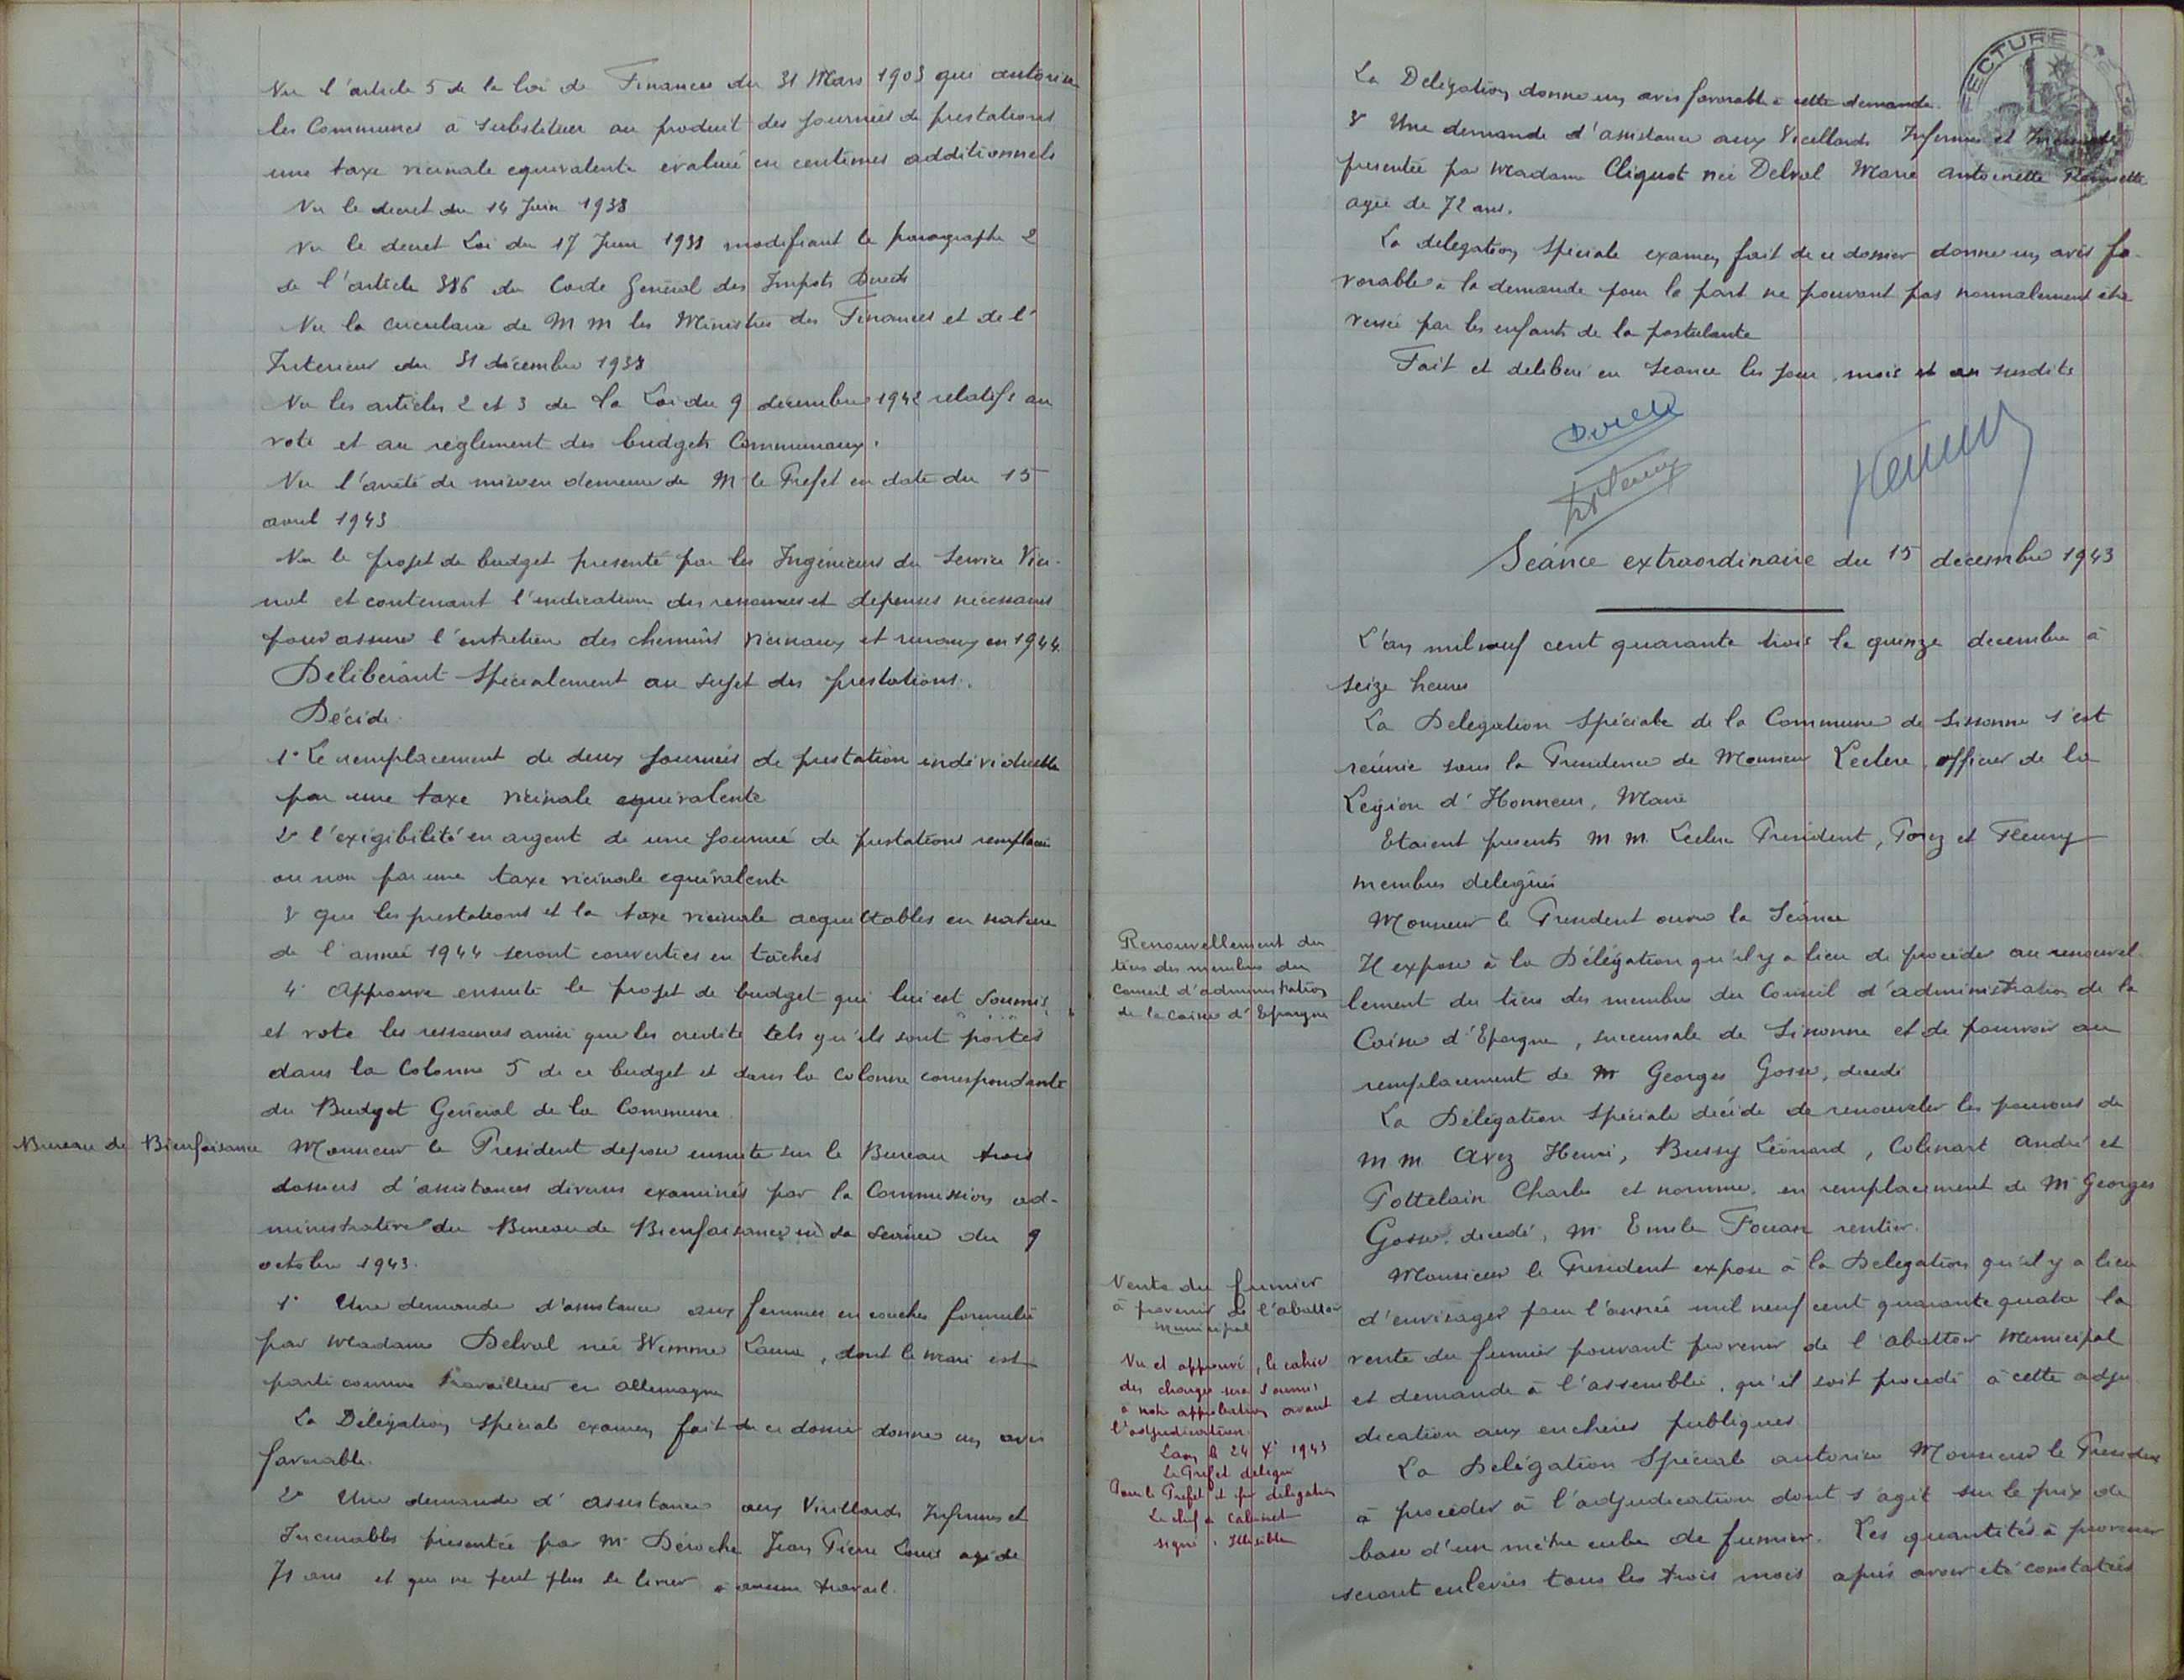 Vu l'article 5 de la loi de Finances du 31 Mars 1903 qui autorise
les Communes à substituer au produit des journées de prestations
une taxe vicinale equivalente evaluée en centimes additionnels
Vu le decret du 14 Juin 1938
Vu le decret Loi du 17 Juin 1938 modifiant le paragraphe 2
de l'article 386 du Code Général des Impots Directs
Vu la circulaire de M M les Ministres des Finances et de l'
Interieur du 31 décembre 1938
Vu les articles 2 et 3 de la Loi du 9 décembre 1942 relatifs au
vote et au reglement des budgets Communaux.
Vu l'arrêté de mise en demeure de M le Prefet en date du 15
avril 1943
Vu le projet de budget presenté par les Ingénieurs du Service Vici-
nal et contenant l'indication des ressources et depenses nécessaires
pour assurer l'entretien des chemins vicinaux et ruraux en 1944.
Délibérant spécialement au sujet des prestations.
Décide:
1° Le remplacement de deux journées de prestation individuelle
par une taxe vicinale equivalente
2° l'exigibilité en argent de une journée de prestations remplacée
ou non par une taxe vicinale equivalente
3° que les prestations et la taxe vicinale acquittables en nature
de l'année 1944 seront converties en tâches
4° Approuve ensuite le projet de budget qui lui est soumis
et vote les ressources ainsi que les credits tels qu'ils sont portés
dans la Colonne 5 de ce budget et dans la colonne correspondante
du Budget Général de la Commune.
Bureau de Bienfaisance
Monsieur le President depose ensuite sur le Bureau trois
dossiers d'assistances diverses examinés par la Commission ad-
ministrative du Bureau de Bienfaisance en sa séance du 9
octobre 1943.
1° Une demande d'assistance aux femmes en couches formulée
par Madame Delval née Wimme Laure, dont le mari est
parti comme travailleur en allemagne
La Délégation spéciale examen fait de ce dossier donne un avis
favorable.
2° Une demande d'assistance aux Vieillards Infirmes et
Incurables présentée par Mr Déroche Jean Pierre Louis agé de
71 ans et qui ne peut plus se livrer à aucun travail.
La Délégation donne un avis favorable à cette demande.
3° Une demande d'assistance aux Vieillards Infirmes et Incurables
presentée par Madame Cliquot née Delval Marie antoinette
agée de 72 ans.
La delegation spéciale examen fait de ce dossier donne un avis fa-
vorable à la demande pour la part ne pouvant pas normalement être
versée par les enfants de la postulante
Fait et deliberé en seance les jour, mois et an susdits
Séance extraordinaire du 15 decembre 1943
L'an mil neuf cent quarante trois le quinze decembre à
seize heures
La Delegation Spéciale de la Commune de Sissonne s'est
réunie sous la Presidence de Monsieur Leclere, officier de la
Légion d'Honneur, Maire
Etaient presents M M. Leclere President, Porez et Fleury
membres delegués
Monsieur le President ouvre la Séance
Renouvellement du
tiers des membres du
Conseil d'administration
de la caisse d'Epargne
Il expose à la Délégation qu'il y a lieu de proceder au renouvel-
lement du tiers des membres du Conseil d'administration de la
Caisse d'Epargne, succursale de Sissonne et de pourvoir au
remplacement de Mr Georges Gosse, decedé
La Délégation Spéciale décide de renouveler les pouvoirs de
M M Avez Henri, Bussy Léonard, Colinart André et
Pottelain Charles et nomme, en remplacement de Mr Georges
Gosse, decedé, Mr Emile Fouan rentier.
Vente du fumier
à provenir de l'abattoir
municipal
Monsieur le President expose à la Delegation qu'il y a lieu
d'envisager pour l'année mil neuf cent quarante quatre la
vente du fumier pouvant provenir de l'abattoir Municipal
et demande à l'assemblée, qu'il soit procedé à cette adju-
dication aux enchères publiques
Vu et approuvé, le cahier
des charges sera soumis
à notre approbation avant
l'adjudication.
Laon le 24 Xe 1943
Le Prefet delegué
Pour le Prefet et par délégation
Le chef de Cabinet
signé: Illisible
La Delégation Spéciale autorise Monsieur le President
à proceder à l'adjudication dont s'agit sur le prix de
base d'un mètre cube de fumier. Les quantités à provenir
seront enlevées tous les trois mois après avoir été constatées